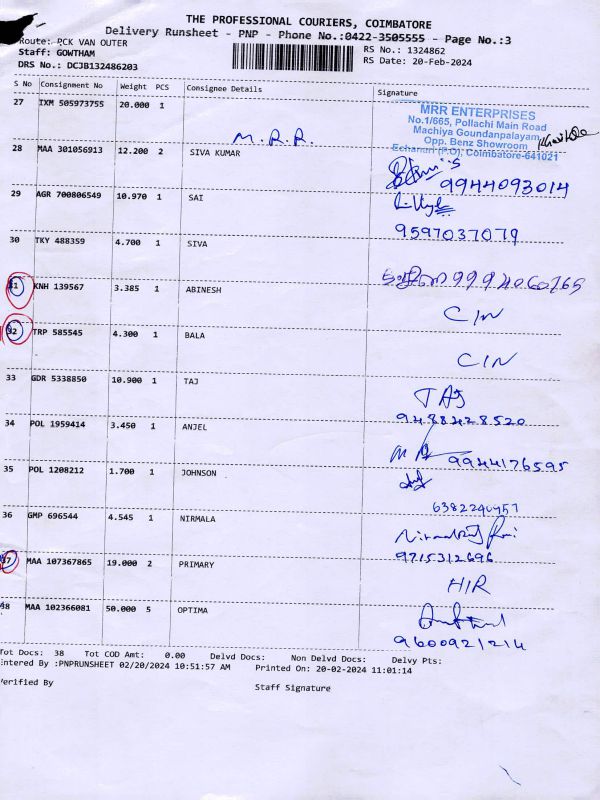 THE PROFESSIONAL COURIERS, COIMBATORE
Delivery Runsheet - PNP - Phone No.:0422-3505555 - Page No.:3
Route: PCK VAN OUTER
RS No.: 1324862
Staff: GOWTHAM
RS Date: 20-Feb-2024
DRS No.: DCJB132486203
S No Consignment No Weight PCS Consignee Details Signature
27 IXM 505973755 20.000 1
M.R.R.
MRR ENTERPRISES
No.1/665, Pollachi Main Road
Machiya Goundanpalayam,
Opp. Benz Showroom
Echanari (P.O), Coimbatore-641021
28 MAA 301056913 12.200 2 SIVA KUMAR
9944093014
29 AGR 700806549 10.970 1 SAI
9597037079
30 TKY 488359 4.700 1 SIVA
9994060765
31 KNH 139567 3.385 1 ABINESH
C/N
32 TRP 585545 4.300 1 BALA
C/N
33 GDR 5338850 10.900 1 TAJ
TAJ
9488428520
34 POL 1959414 3.450 1 ANJEL
9944176595
35 POL 1208212 1.700 1 JOHNSON
6382240457
36 GMP 696544 4.545 1 NIRMALA
9715312696
37 MAA 107367865 19.000 2 PRIMARY
H/R
38 MAA 102366081 50.000 5 OPTIMA
9600921214
Tot Docs: 38 Tot COD Amt: 0.00 Delvd Docs: Non Delvd Docs: Delvy Pts:
Entered By :PNPRUNSHEET 02/20/2024 10:51:57 AM Printed On: 20-02-2024 11:01:14
Verified By
Staff Signature